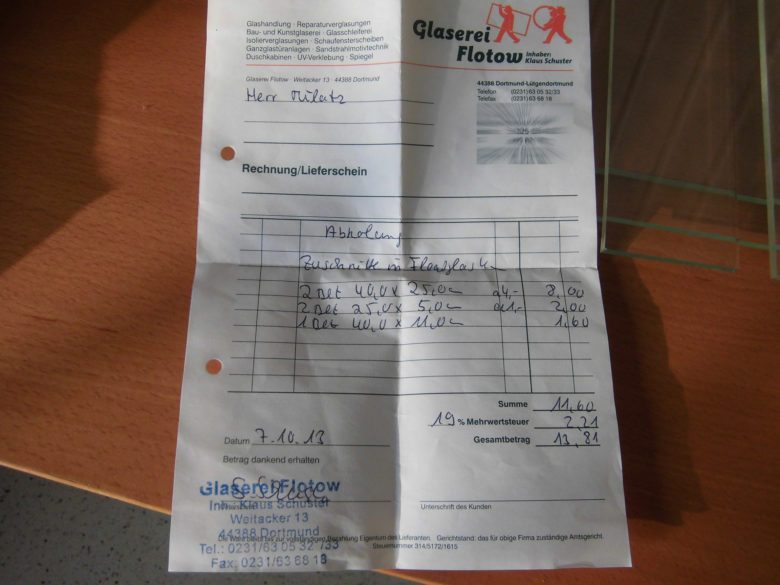 Glashandlung · Reparaturverglasungen
Bau- und Kunstglaserei · Glasschleiferei
Isolierverglasungen · Schaufensterscheiben
Ganzglastüranlagen · Sandstrahlmotivtechnik
Duschkabinen · UV-Verklebung · Spiegel
Glaserei
Flotow
Inhaber:
Klaus Schuster
Glaserei Flotow · Weitacker 13 · 44388 Dortmund
44388 Dortmund-Lütgendortmund
Telefon (0231) 63 05 32/33
Telefax (0231) 63 68 18
Herr
Rechnung/Lieferschein
Abholung
Zuschnitte in Floatglas
2 40,0 x 25,0 a 4,- 8,00
2 25,0 x 5,0 a 1,- 2,00
1 40,0 x 11,0 1,60
Summe 11,60
19 % Mehrwertsteuer 2,21
Gesamtbetrag 13,81
Datum 7.10.13
Betrag dankend erhalten
Glaserei Flotow
Inh. Klaus Schuster
Weitacker 13
44388 Dortmund
Tel.: 0231/63 05 32 /33
Fax: 0231/63 68 18
Unterschrift des Kunden
Die Ware bleibt bis zur vollständigen Bezahlung Eigentum des Lieferanten. Gerichtstand: das für obige Firma zuständige Amtsgericht.
Steuernummer 314/5172/1615